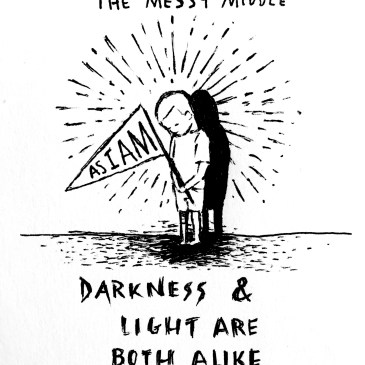 THE MESSY MIDDLE
AS I AM
DARKNESS &
LIGHT ARE
BOTH ALIKE